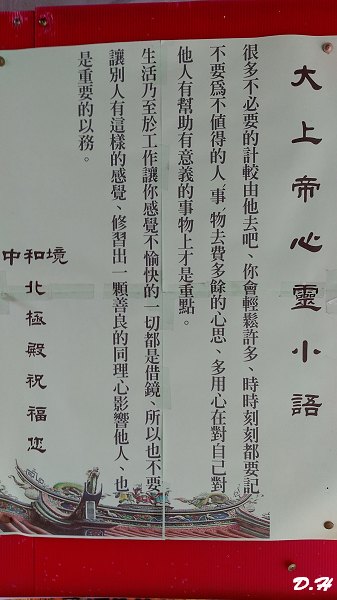 大上帝心靈小語
很多不必要的計較由他去吧、你會輕鬆許多、時時刻刻都要記
不要為不值得的人、事、物去費多餘的心思、多用心在對自己對
他人有幫助有意義的事物上才是重點。
生活乃至於工作讓你感覺不愉快的一切都是借鏡、所以也不要
讓別人有這樣的感覺、修習出一顆善良的同理心影響他人、也
是重要的以務。
中和境
北極殿祝福您
D.H